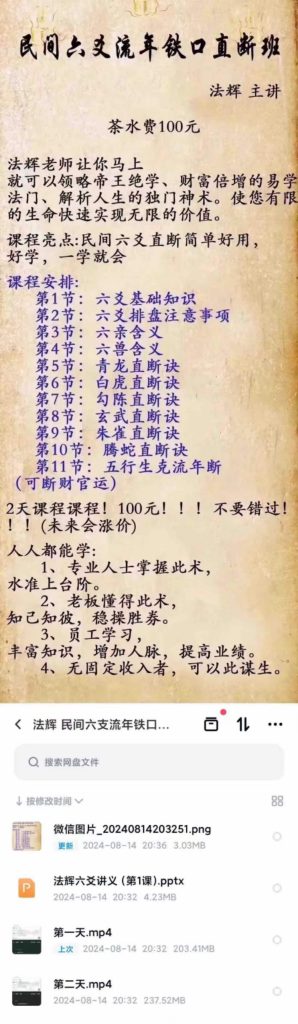 民间六爻流年铁口直断班
法辉 主讲
茶水费100元
法辉老师让你马上
就可以领略帝王绝学、财富倍增的易学
法门、解析人生的独门神术。使您有限
的生命快速实现无限的价值。
课程亮点:民间六爻直断简单好用,
好学，一学就会
课程安排:
第1节：六爻基础知识
第2节：六爻排盘注意事项
第3节：六亲含义
第4节：六兽含义
第5节：青龙直断诀
第6节：白虎直断诀
第7节：勾陈直断诀
第8节：玄武直断诀
第9节：朱雀直断诀
第10节：腾蛇直断诀
第11节：五行生克流年断
（可断财官运）
2天课程课程！100元！！！不要错过！
！！(未来会涨价)
人人都能学:
1、专业人士掌握此术，
水准上台阶。
2、老板懂得此术，
知己知彼，稳操胜券。
3、员工学习，
丰富知识，增加人脉，提高业绩。
4、无固定收入者，可以此谋生。
法辉 民间六支流年铁口...
搜索网盘文件
按修改时间
微信图片_20240814203251.png
更新 2024-08-14 20:36 3.03MB
法辉六爻讲义 (第1课).pptx
2024-08-14 20:32 4.23MB
第一天.mp4
上次 2024-08-14 20:32 203.41MB
第二天.mp4
2024-08-14 20:32 237.52MB